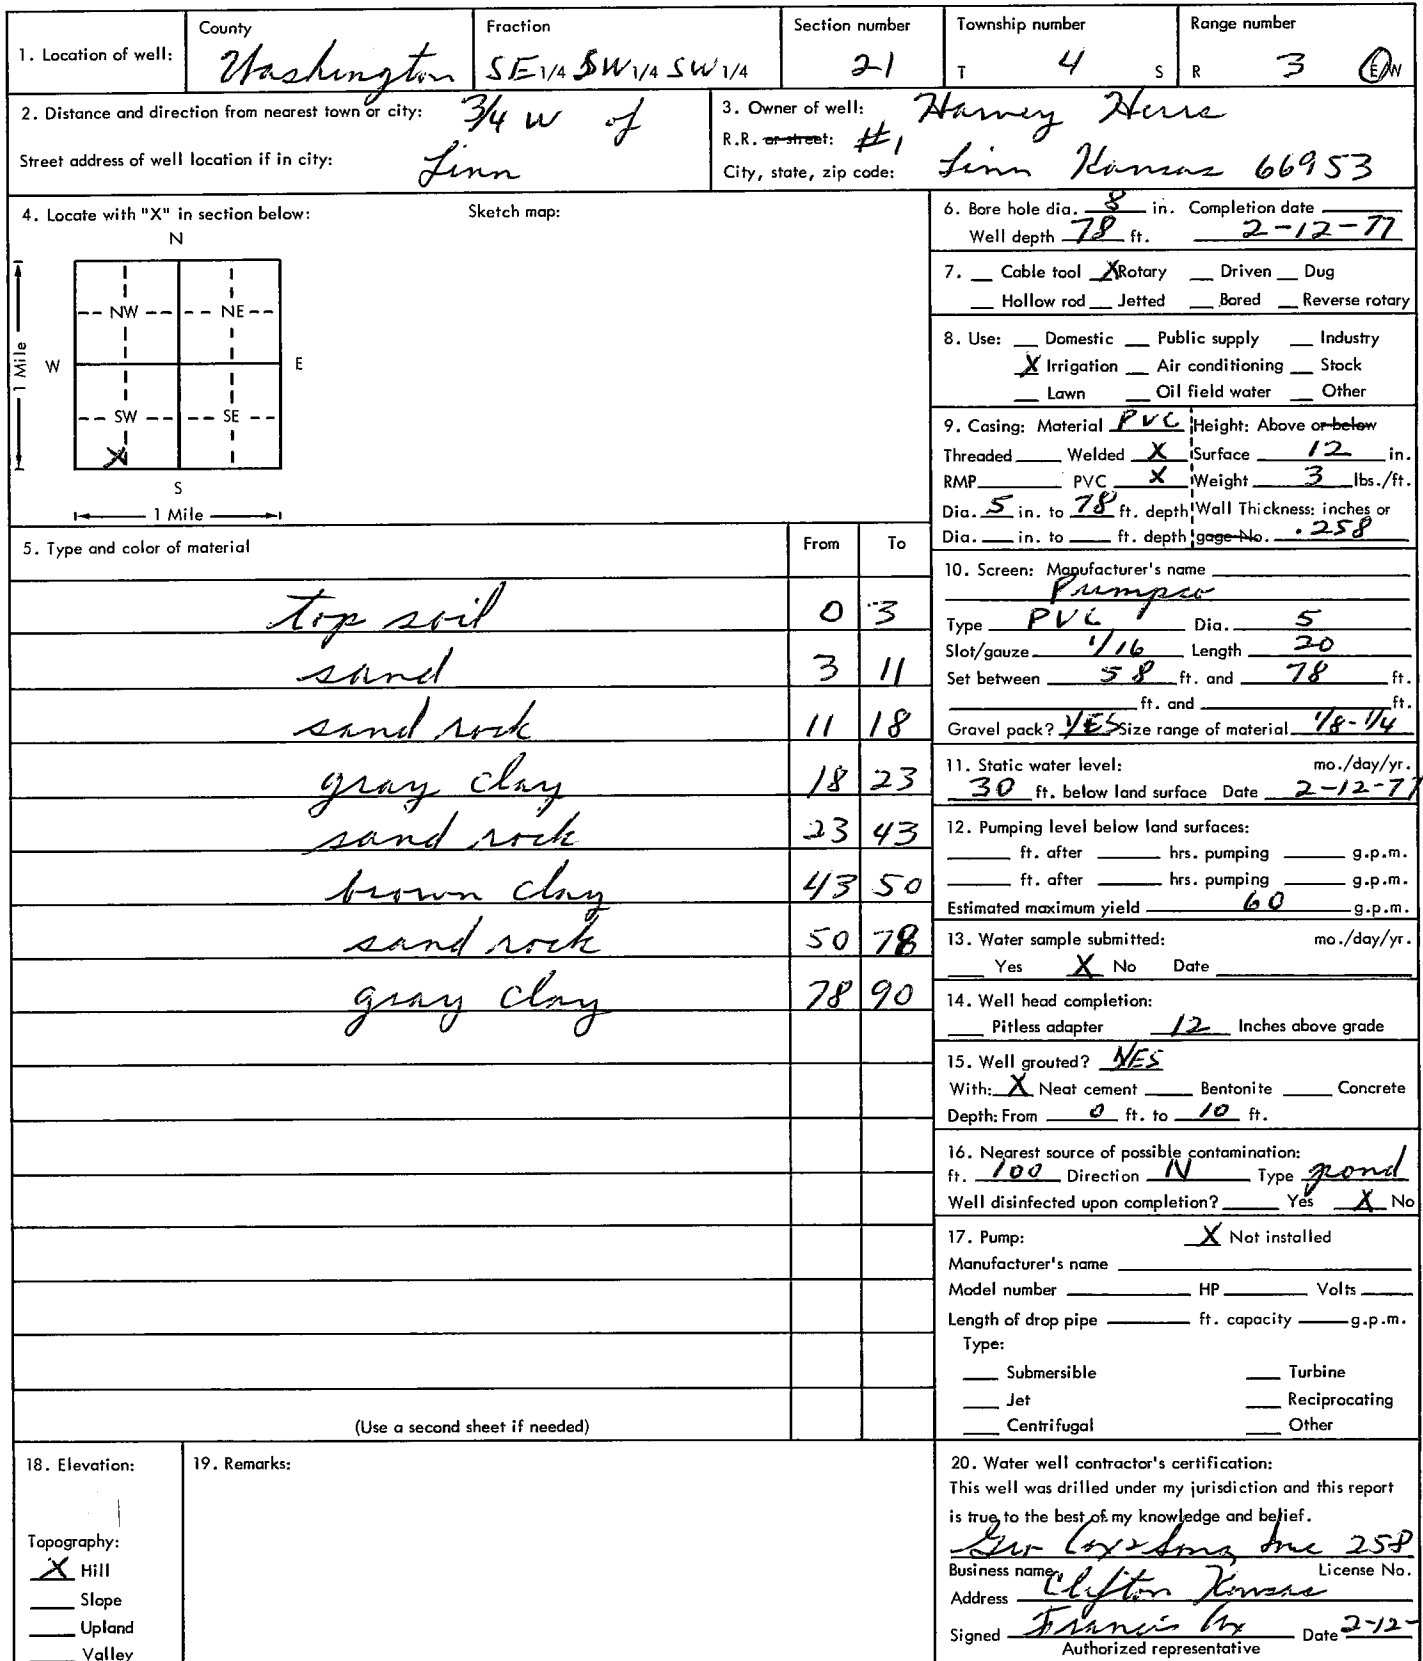 County Fraction Section number Township number Range number
1. Location of well: Washington SE 1/4 SW 1/4 SW 1/4 21 T 4 S R 3 E/W
2. Distance and direction from nearest town or city: 3/4 W of
Street address of well location if in city: Linn
3. Owner of well: Harvey Herrs
R.R. or street: #1
City, state, zip code: Linn Kansas 66953
4. Locate with "X" in section below: Sketch map:
N
NW NE
W E
1 Mile
SW SE
X
S
1 Mile
5. Type and color of material From To
top soil 0 3
sand 3 11
sand rock 11 18
gray clay 18 23
sand rock 23 43
brown clay 43 50
sand rock 50 78
gray clay 78 90
(Use a second sheet if needed)
6. Bore hole dia. 8 in. Completion date
Well depth 78 ft. 2-12-77
7. __ Cable tool X Rotary __ Driven __ Dug
__ Hollow rod __ Jetted __ Bored __ Reverse rotary
8. Use: __ Domestic __ Public supply __ Industry
X Irrigation __ Air conditioning __ Stock
__ Lawn __ Oil field water __ Other
9. Casing: Material PVC Height: Above or below
Threaded __ Welded X Surface 12 in.
RMP __ PVC X Weight 3 lbs./ft.
Dia. 5 in. to 78 ft. depth Wall Thickness: inches or
Dia. __ in. to __ ft. depth gage No. .258
10. Screen: Manufacturer's name
Pumpco
Type PVC Dia. 5
Slot/gauze 1/16 Length 20
Set between 58 ft. and 78 ft.
__ ft. and __ ft.
Gravel pack? YES Size range of material 1/8-1/4
11. Static water level: mo./day/yr.
30 ft. below land surface Date 2-12-77
12. Pumping level below land surfaces:
__ ft. after __ hrs. pumping __ g.p.m.
__ ft. after __ hrs. pumping __ g.p.m.
Estimated maximum yield 60 g.p.m.
13. Water sample submitted: mo./day/yr.
__ Yes X No Date __
14. Well head completion:
__ Pitless adapter 12 Inches above grade
15. Well grouted? YES
With: X Neat cement __ Bentonite __ Concrete
Depth: From 0 ft. to 10 ft.
16. Nearest source of possible contamination:
ft. 100 Direction N Type pond
Well disinfected upon completion? __ Yes X No
17. Pump: X Not installed
Manufacturer's name __
Model number __ HP __ Volts __
Length of drop pipe __ ft. capacity __ g.p.m.
Type:
__ Submersible __ Turbine
__ Jet __ Reciprocating
__ Centrifugal __ Other
18. Elevation:
Topography:
X Hill
__ Slope
__ Upland
__ Valley
19. Remarks:
20. Water well contractor's certification:
This well was drilled under my jurisdiction and this report
is true to the best of my knowledge and belief.
Geo Cox & Sons, Inc 258
Business name License No.
Address Clifton Kansas
Signed Francis Cox Date 2-12-
Authorized representative